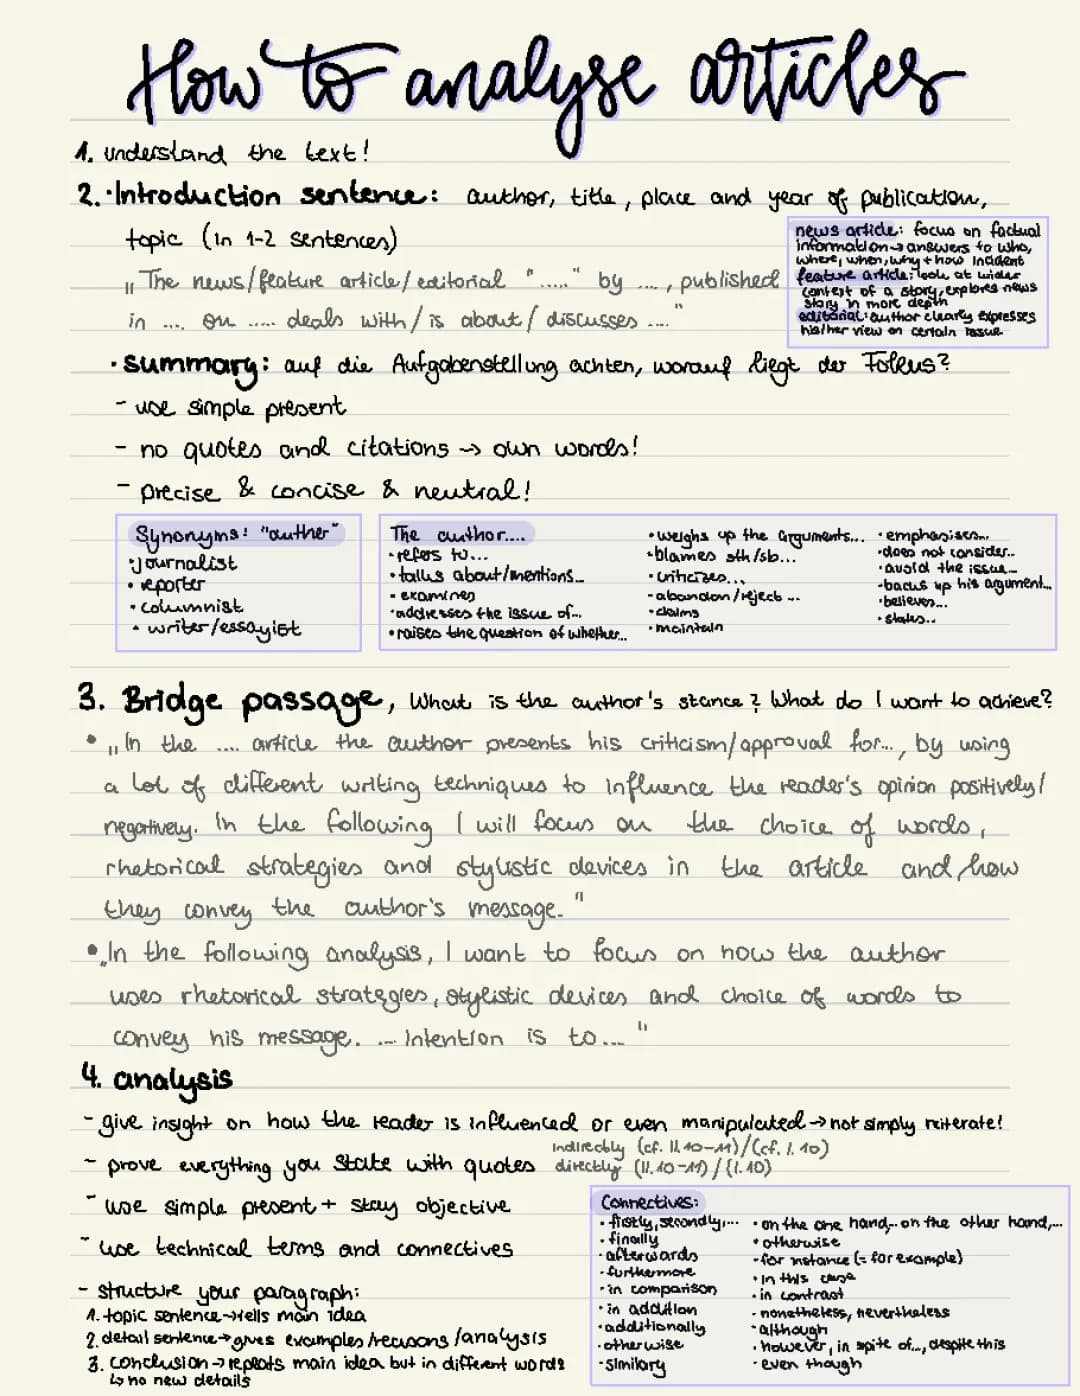 How to analyse articles
1. understand the text!
2. · Introduction sentence: author, title, place and year of publication,
topic (in 1-2 sentences)
„The news/feature article/editorial "....." by ...., published
in .... on ..... deals with/is about/discusses ...."
news article: focus on factual
information → answers to who,
where, when, why + how incident
feature article: look at wider
context of a story, explores news
story in more depth
editorial: author clearly expresses
his/her view on certain issue
· summary: auf die Aufgabenstellung achten, worauf liegt der Fokus?
- use simple present
- no quotes and citations → own words!
- precise & concise & neutral!
Synonyms: "author"
· journalist
· reporter
· columnist
· writer/essayist
The author....
· refers to...
· talks about/mentions...
· examines
· addresses the issue of...
· raises the question of whether...
· weighs up the arguments...
· blames sth/sb...
· criticizes...
· abandon/reject ...
· claims
· maintain
· emphasises...
· does not consider..
· avoid the issue...
· backs up his argument...
· believes...
· states..
3. Bridge passage, What is the author's stance? What do I want to achieve?
• „In the .... article the author presents his criticism/approval for..., by using
a lot of different writing techniques to influence the reader's opinion positively/
negatively. In the following I will focus on the choice of words,
rhetorical strategies and stylistic devices in the article and how
they convey the author's message."
• „In the following analysis, I want to focus on how the author
uses rhetorical strategies, stylistic devices and choice of words to
convey his message. ... Intention is to...."
4. analysis
- give insight on how the reader is influenced or even manipulated → not simply reiterate!
- prove everything you state with quotes indirectly (cf. ll. 10-11)/(cf. l. 10)
directly (ll. 10-11)/(l. 10)
- use simple present + stay objective
- use technical terms and connectives
- structure your paragraph:
1. topic sentence → tells main idea
2. detail sentence → gives examples/reasons/analysis
3. conclusion → repeats main idea but in different words
↳ no new details
Connectives:
· firstly, secondly,...
· finally
· afterwards
· furthermore
· in comparison
· in addition
· additionally
· otherwise
· similary
· on the one hand,... on the other hand,...
· otherwise
· for instance (= for example)
· in this case
· in contrast
· nonetheless, nevertheless
· although
· however, in spite of..., despite this
· even though